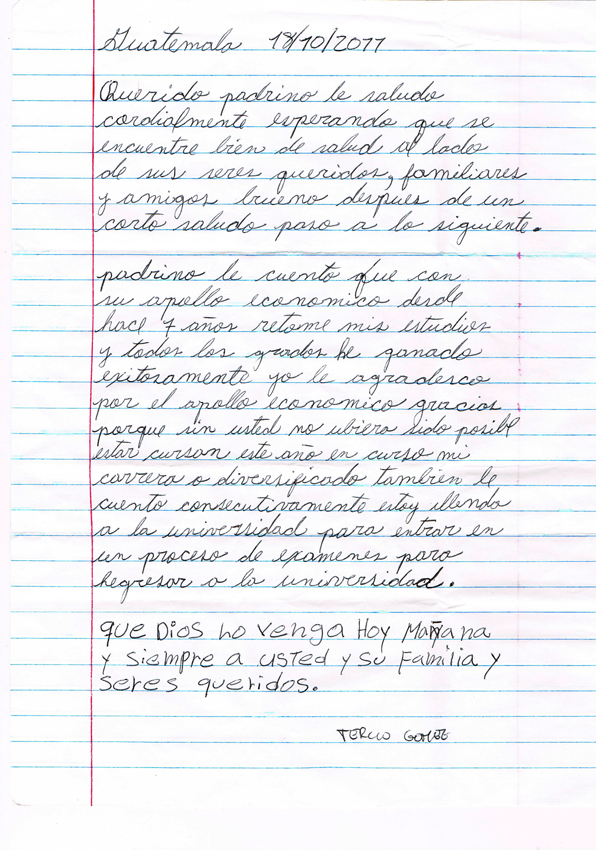 Guatemala 18/10/2011
Querido padrino le saludo
cordialmente esperando que se
encuentre bien de salud al lados
de sus seres queridos, familiares
y amigos brueno despues de un
corto saludo paso a lo siguiente.
padrino le cuento que con
su apollo economico desde
hace 7 años retome mis estudios
y todos los grados he ganado
exitosamente yo le agradesco
por el apollo economico gracias
porque sin usted no ubiera sido posibl
estar cursan este año en curso mi
carrera o diversificado tambien le
cuento consecutivamente estoy illendo
a la universidad para entrar en
un proceso de examenes para
hegresar a la universidad.
que Dios lo venga Hoy Mañana
y siempre a usted y su Familia y
seres queridos.